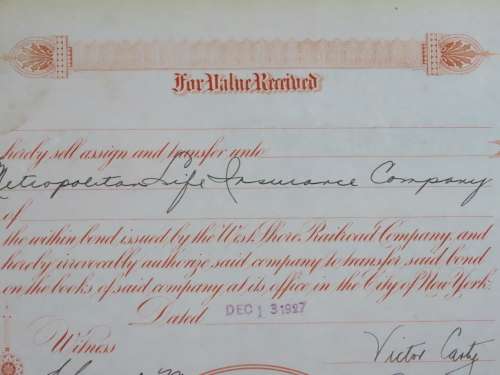 For Value Received
hereby sell assign and transfer unto
Metropolitan Life Insurance Company
of
the within bond issued by the West Shore Railroad Company, and
hereby irrevocably authorize said company to transfer said bond
on the books of said company at its office in the City of New York.
Dated DEC 13 1927
Witness
Victor